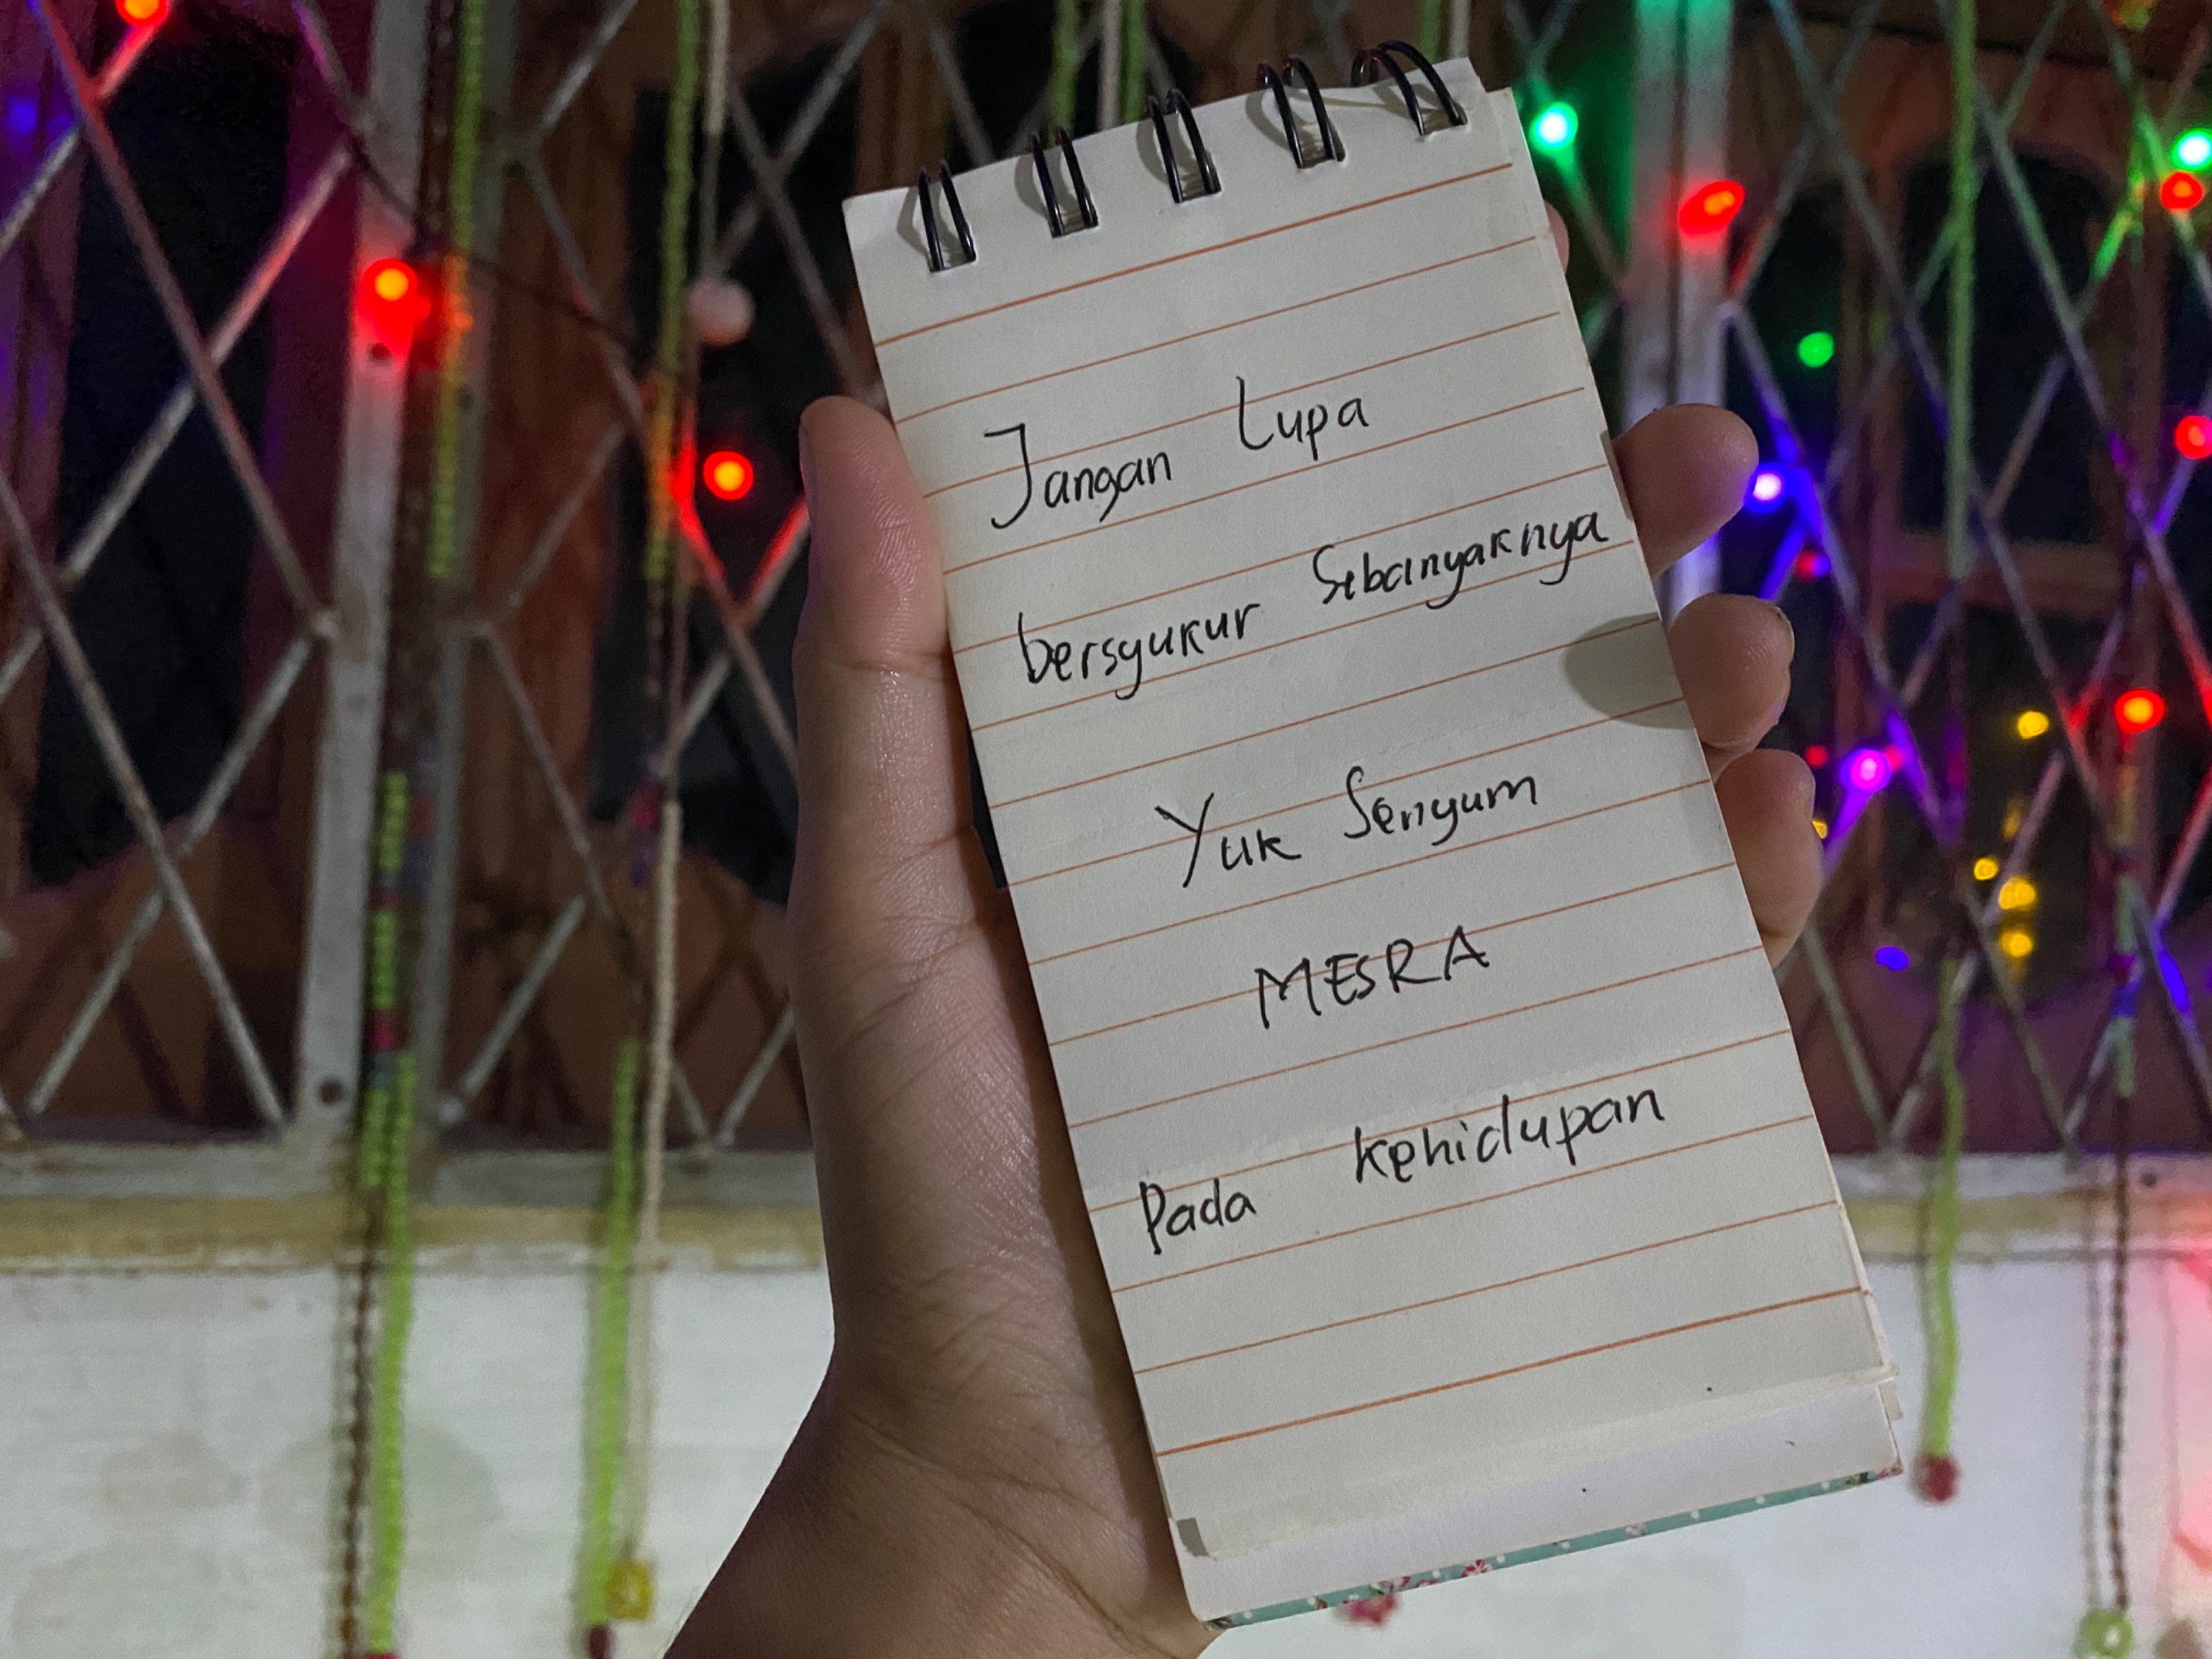 Jangan Lupa
bersyukur Sebanyaknya
Yuk Senyum
MESRA
Pada kehidupan